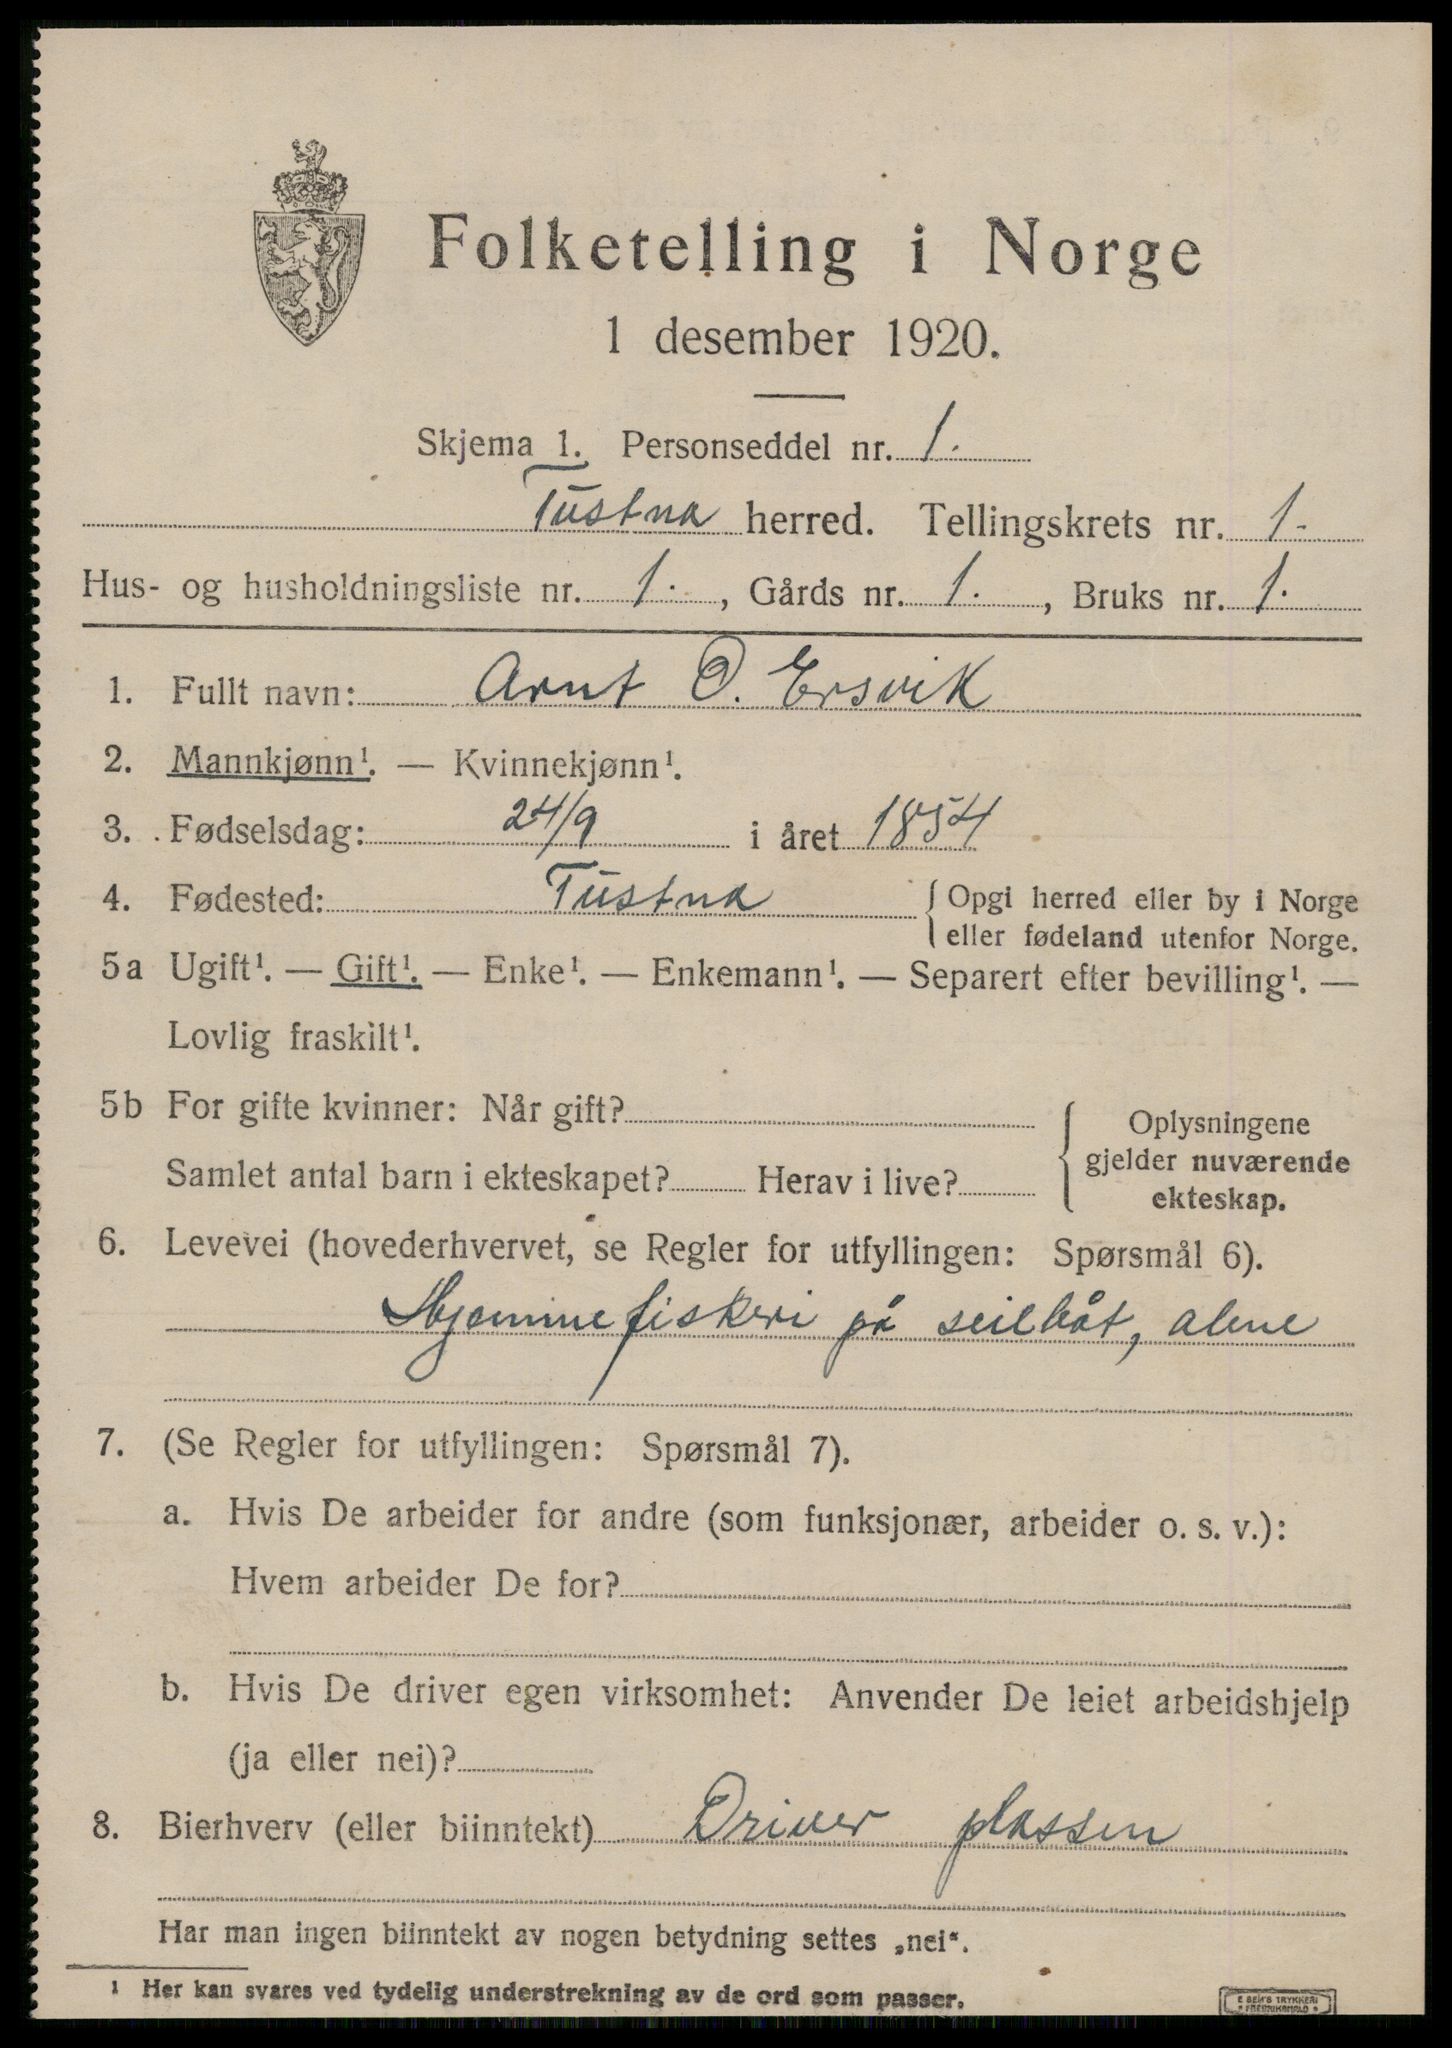 Folketelling i Norge
1 desember 1920.
Skjema 1. Personseddel nr. 1.
Tustna herred. Tellingskrets nr. 1.
Hus- og husholdningsliste nr. 1. , Gårds nr. 1. , Bruks nr. 1.
1. Fullt navn: Arnt O. Ersvik
2. Mannkjønn¹. — Kvinnekjønn¹.
3. Fødselsdag: 24/9 i året 1854
4. Fødested: Tustna { Opgi herred eller by i Norge
eller fødeland utenfor Norge.
5a Ugift¹. — Gift¹. — Enke¹. — Enkemann¹. — Separert efter bevilling¹. —
Lovlig fraskilt¹.
5b For gifte kvinner: Når gift?
Samlet antal barn i ekteskapet? Herav i live?
Oplysningene
gjelder nuværende
ekteskap.
6. Levevei (hovederhvervet, se Regler for utfyllingen: Spørsmål 6).
Hjemmefiskeri på seilbåt, alene
7. (Se Regler for utfyllingen: Spørsmål 7).
a. Hvis De arbeider for andre (som funksjonær, arbeider o. s. v.):
Hvem arbeider De for?
b. Hvis De driver egen virksomhet: Anvender De leiet arbeidshjelp
(ja eller nei)?
8. Bierhverv (eller biinntekt) Driver plassen
Har man ingen biinntekt av nogen betydning settes „nei“.
¹ Her kan svares ved tydelig understrekning av de ord som passer.
E SEM'S TRYKKERI
FREDRIKSHALD